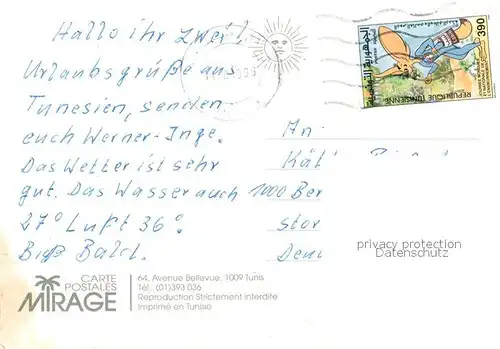 Hallo ihr zwei!
Urlaubsgrüße aus
Tunesien, senden
euch Werner-Inge.
Das Wetter ist sehr
gut. Das Wasser auch
27° Luft 36°.
Biß Bald.
An
Käti
1000 Ber
stor
privacy protection
Datenschutz
390
RÉPUBLIQUE TUNISIENNE
الجمهورية التونسية
CARTE
POSTALES
MIRAGE
64, Avenue Bellevue, 1009 Tunis
Tél.: (01) 393 036
Reproduction Strictement interdite
Imprimé en Tunisie